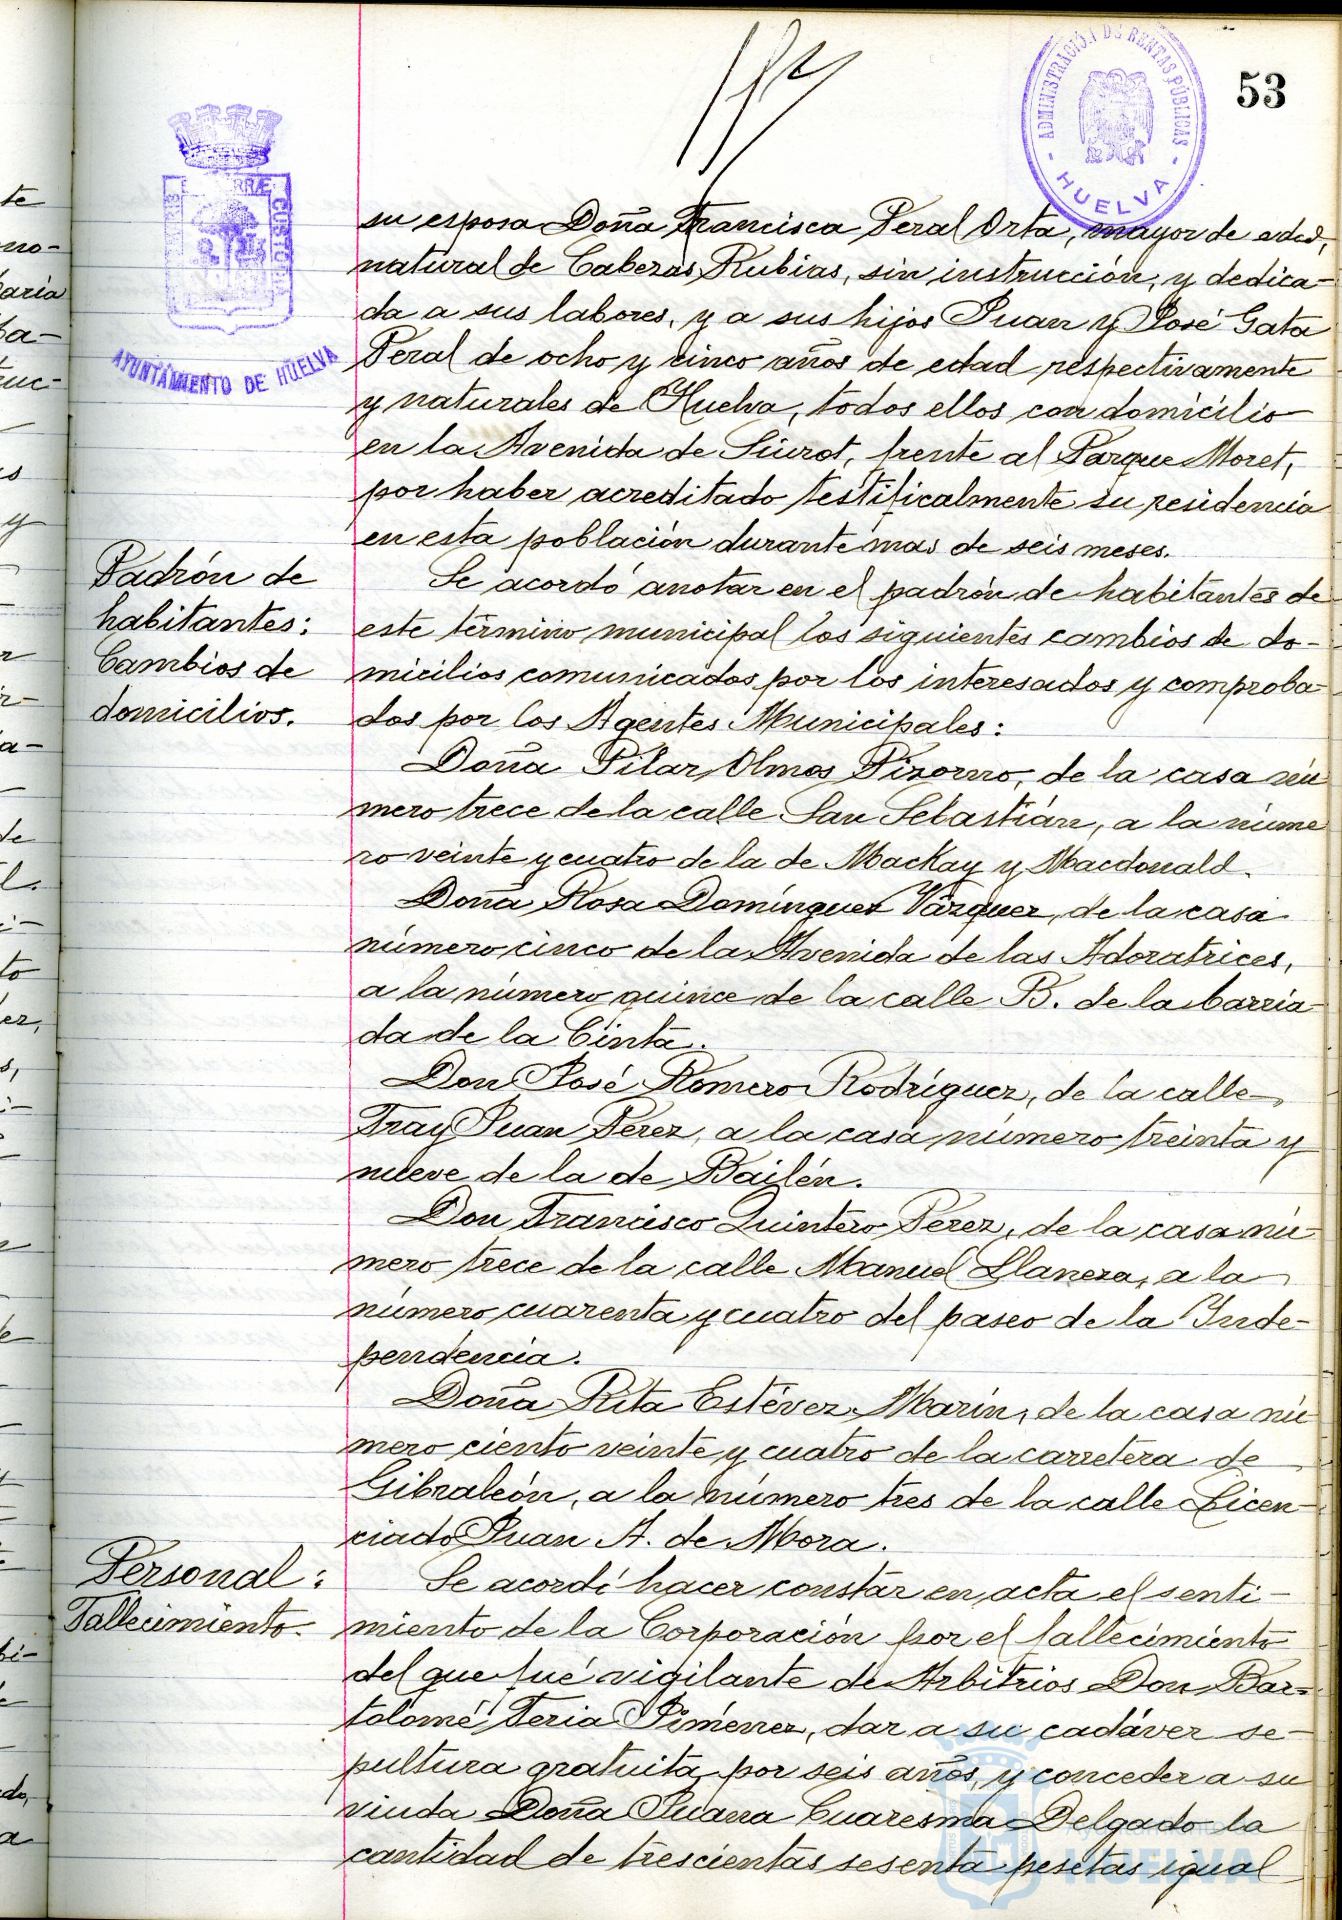 53
ADMINISTRACIÓN DE RENTAS PÚBLICAS
- HUELVA -
CUSTODIA
AYUNTAMIENTO DE HUELVA
su esposa Doña Francisca Peral Orta, mayor de edad,
natural de Cabezas Rubias, sin instrucción, y dedica-
da a sus labores, y a sus hijos Juan y José Gata
Peral de ocho y cinco años de edad respectivamente
y naturales de Huelva, todos ellos con domicilio
en la Avenida de Siurot, frente al Parque Moret,
por haber acreditado testificalmente su residencia
en esta población durante mas de seis meses.
Padrón de
habitantes:
Cambios de
domicilios.
Se acordó anotar en el padrón de habitantes de
este término municipal los siguientes cambios de do-
micilios comunicados por los interesados y comproba-
dos por los Agentes Municipales:
Doña Pilar Olmos Pizorno, de la casa nú
mero trece de la calle San Sebastián, a la núme
ro veinte y cuatro de la de Mackay y Macdonald.
Doña Rosa Domínguez Vázquez, de la casa
número cinco de la Avenida de las Adoratrices,
a la número quince de la calle B. de la barria-
da de la Cinta.
Don José Romero Rodríguez, de la calle
Fray Juan Pérez, a la casa número treinta y
nueve de la de Bailén.
Don Francisco Quintero Pérez, de la casa nú-
mero trece de la calle Manuel Llaneza, a la
número cuarenta y cuatro del paseo de la Inde-
pendencia.
Doña Rita Estévez Marín, de la casa nú
mero ciento veinte y cuatro de la carretera de
Gibraleón, a la número tres de la calle Licen-
ciado Juan A. de Mora.
Personal:
Fallecimiento.
Se acordó hacer constar en acta el senti-
miento de la Corporación por el fallecimiento
del que fué vigilante de Arbitrios Don Bar-
tolomé Feria Jiménez, dar a su cadáver se-
pultura gratuita por seis años, y conceder a su
viuda Doña Juana Cuaresma Delgado la
cantidad de trescientas sesenta pesetas igual
HUELVA